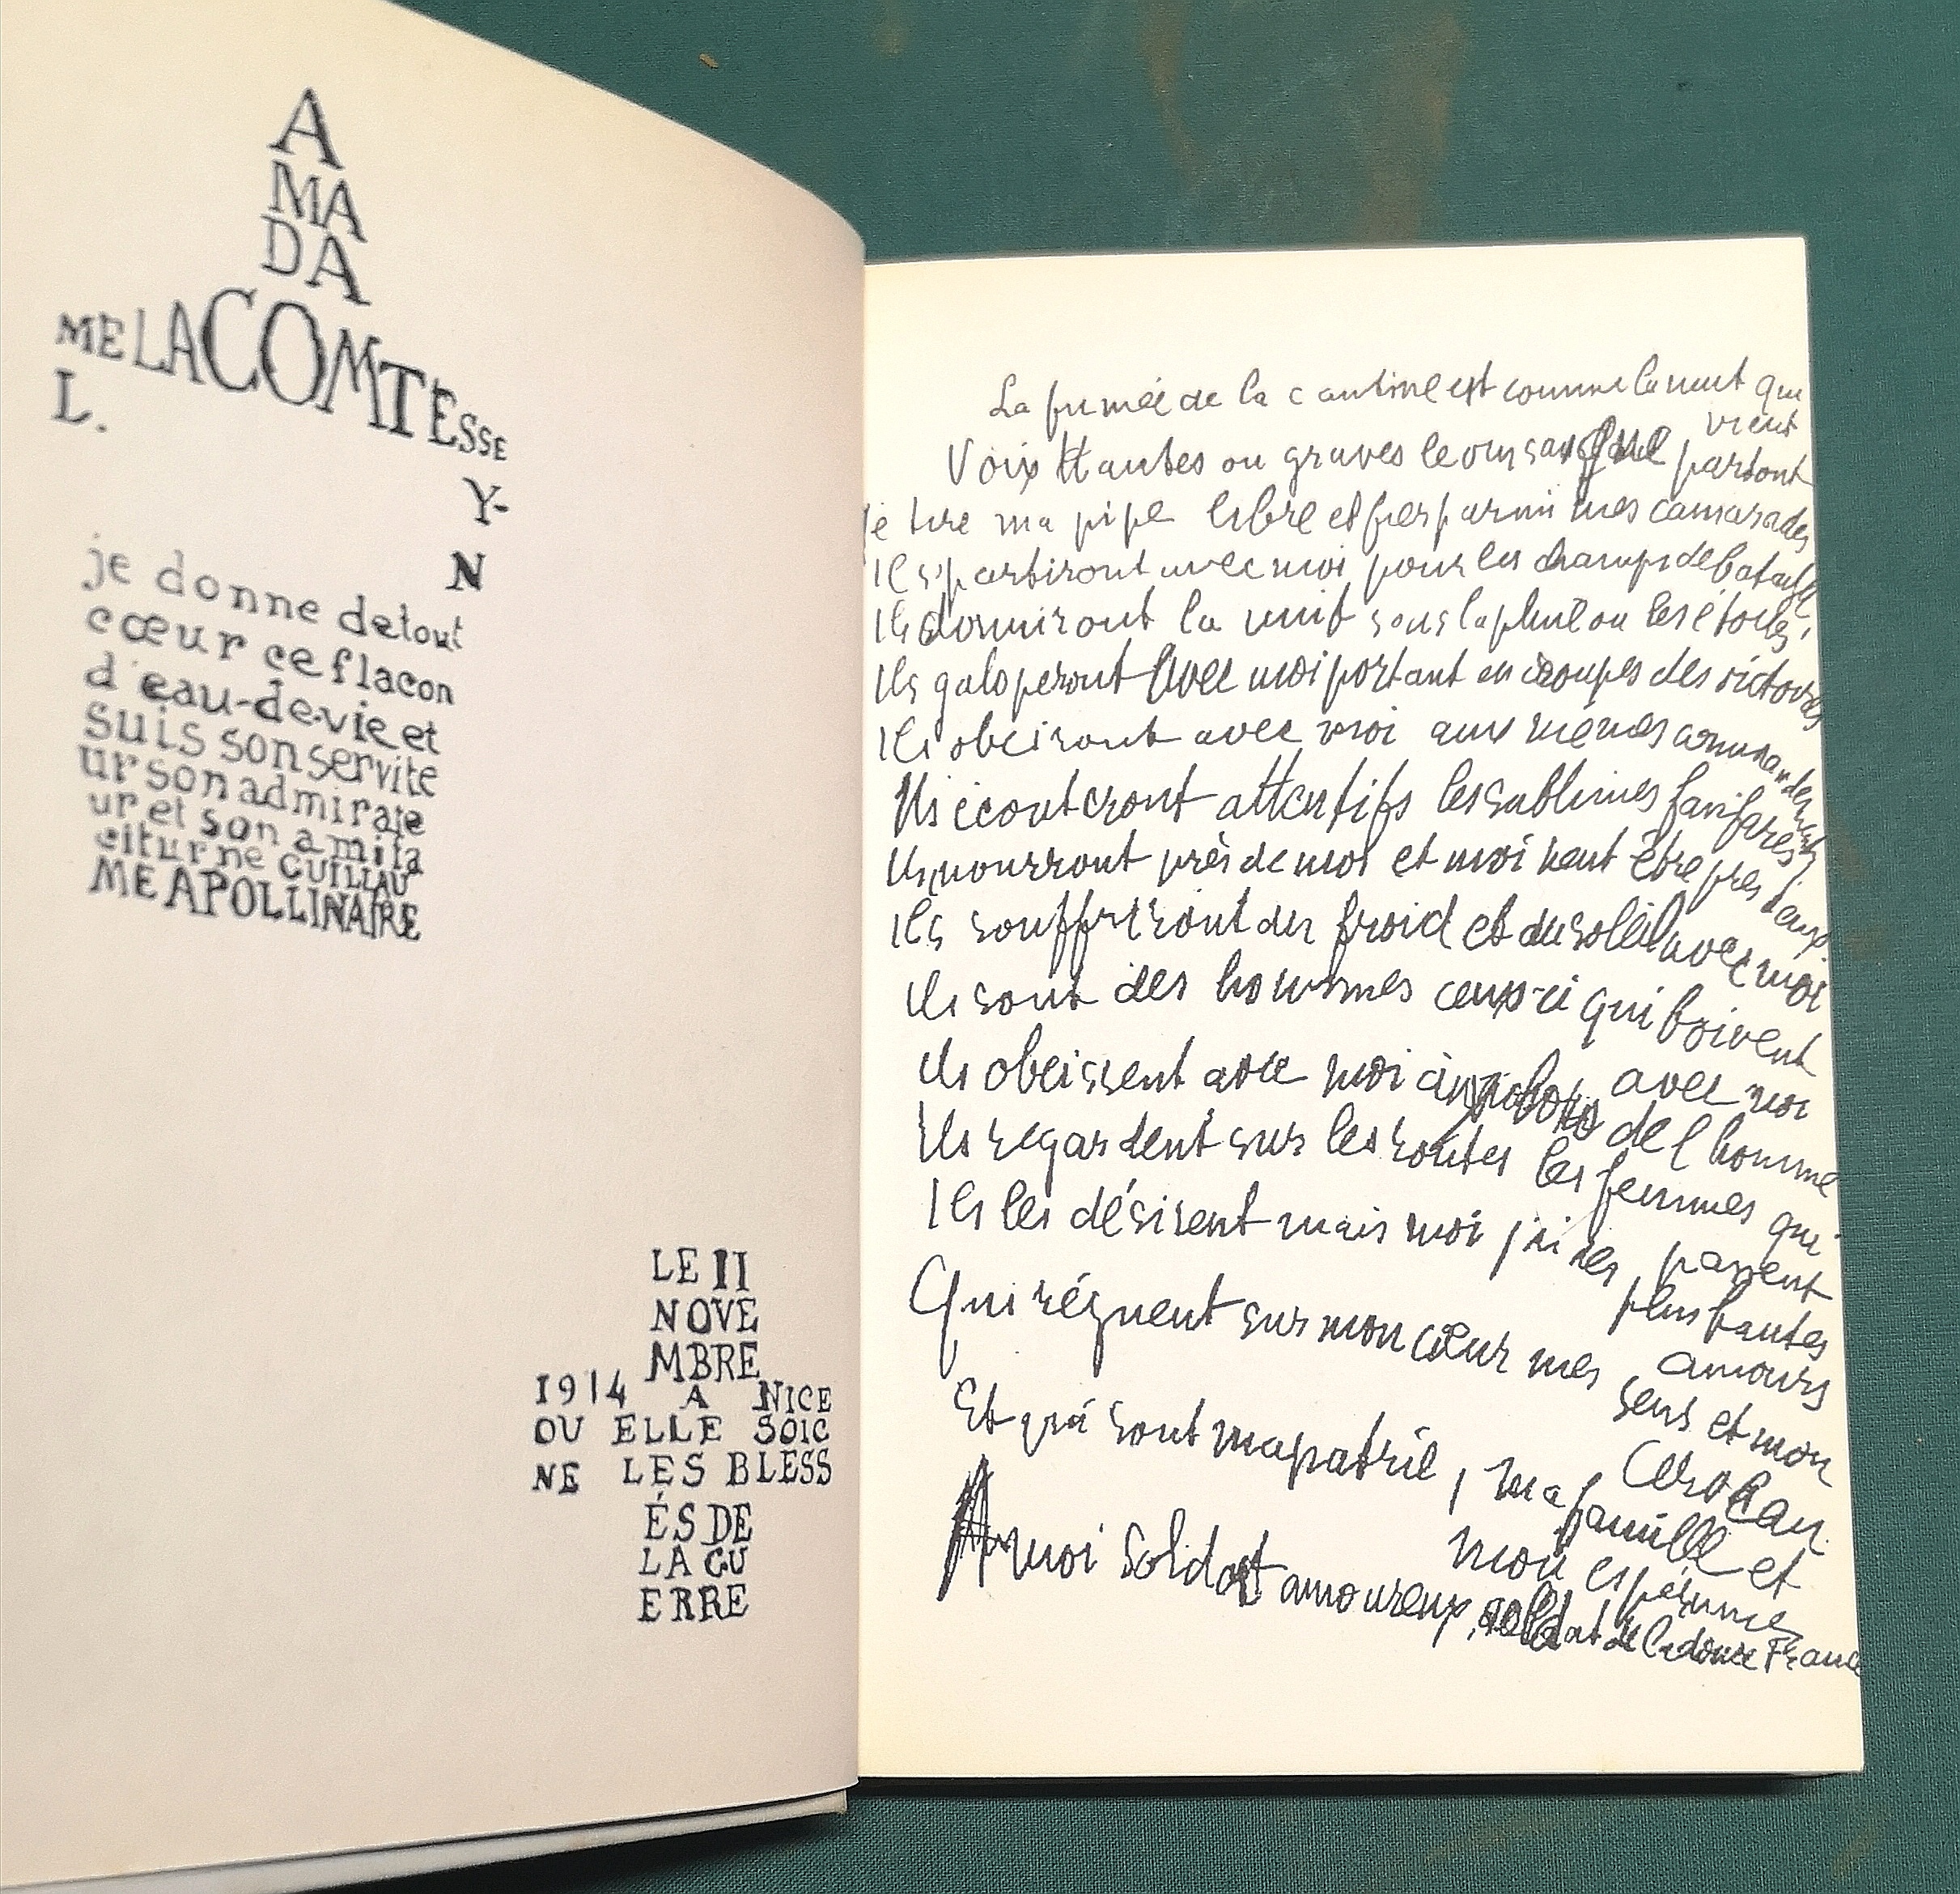 A
MA
DA
ME LA COMTESSE
L.
Y-
N
je donne de tout
cœur ce flacon
d'eau-de-vie et
suis son servite
ur son admirate
ur et son ami ta
citurne GUILLAU
ME APOLLINAIRE
LE II
NOVE
MBRE
1914 A NICE
OU ELLE SOIG
NE LES BLESS
ÉS DE
LA GU
ERRE
La fumée de la cantine est comme la nuit qui
vient
Voix Hautes ou graves le vin saigne partout
Je tire ma pipe libre et fier parmi mes camarades
Ils partiront avec moi pour les champs de bataille
Ils dormiront la nuit sous la pluie ou les étoiles,
Ils galoperont avec moi portant en croupes des victoires
Ils obéiront avec moi aux mêmes commandements
Ils écouteront attentifs les sublimes fanfares
Ils mourront près de moi et moi peut être près d'eux.
Ils souffriront du froid et du soleil avec moi
Ils sont des hommes ceux-ci qui boivent
avec moi
Ils obéissent avec moi aux lois de l homme
Ils regardent sur les routes les femmes qui
passent
Ils les désirent mais moi j'ai des plus hautes
amours
Qui règnent sur mon cœur mes sens et mon
Cerveau
Et qui sont ma patrie, ma famille et
mon espérance
A moi soldat amoureux, soldat de la douce France